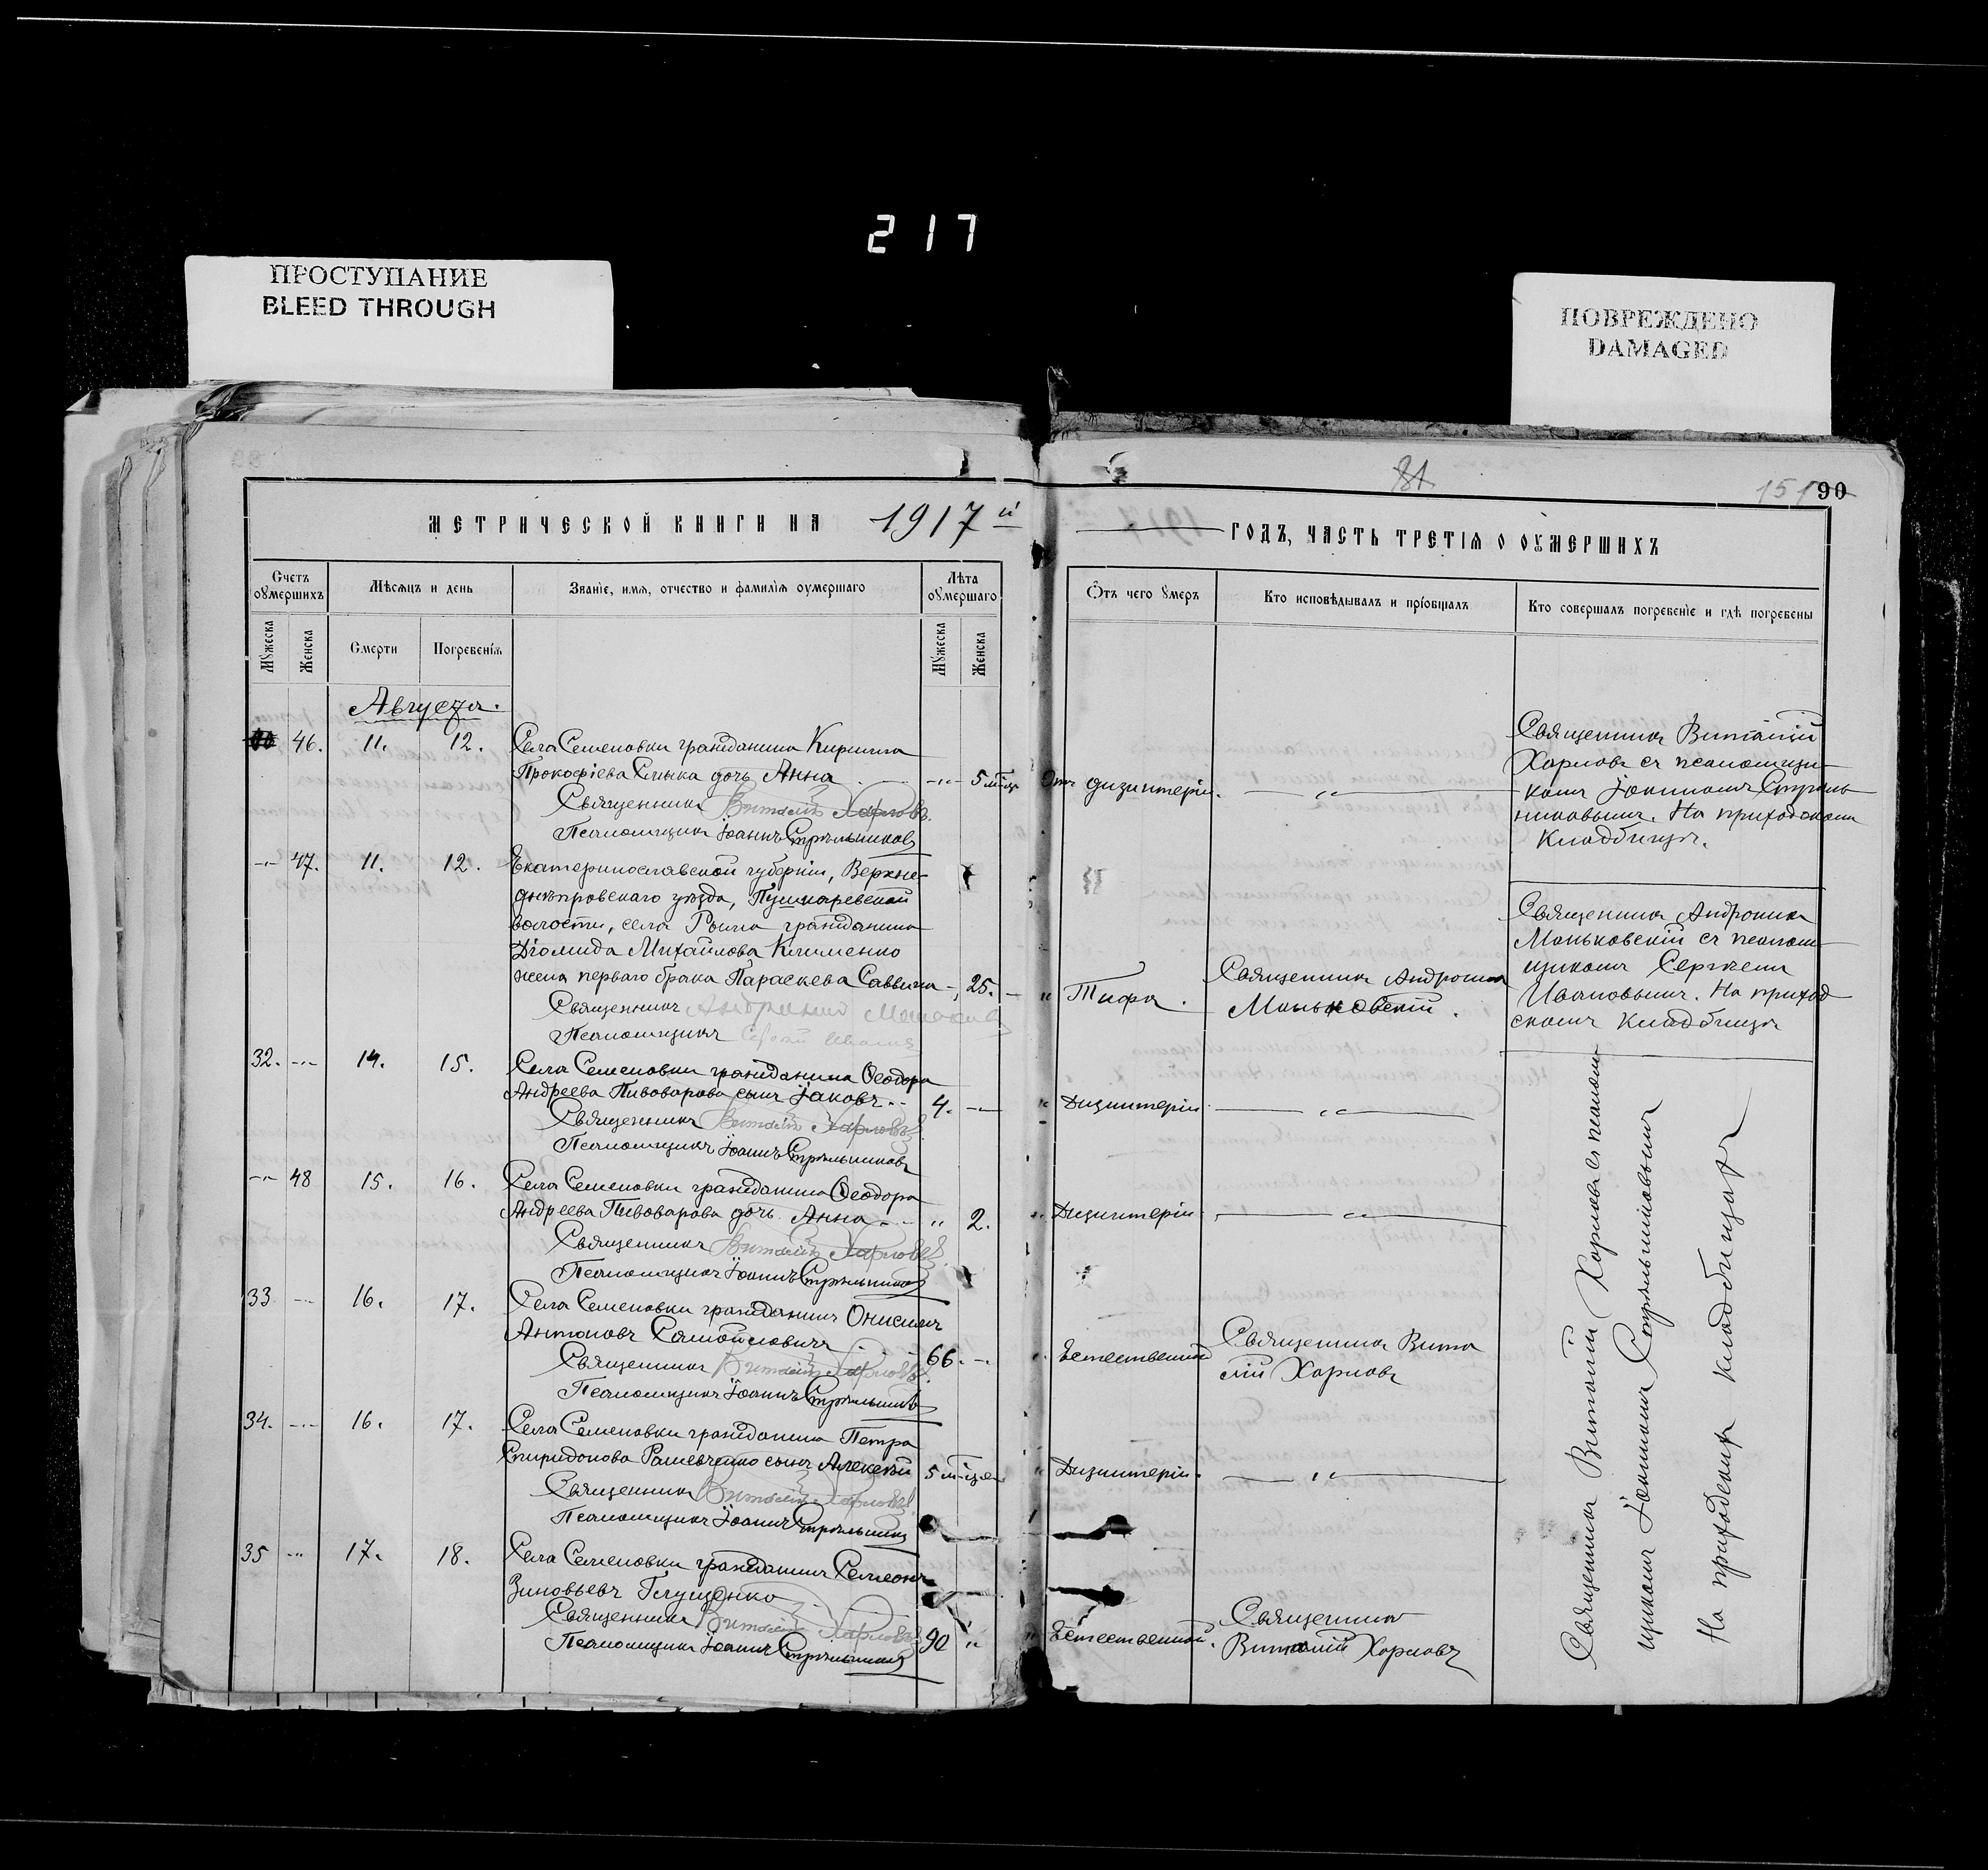 217
ПРОСТУПАНИЕ
BLEED THROUGH
ПОВРЕЖДЕНО
DAMAGED
81
151
90
МЕТРИЧЕСКОЙ КНИГИ НА 1917 й
ГОДЪ, ЧАСТЬ ТРЕТІѦ О ОУМЕРШИХЪ
Счетъ оумершихъ
Мѣсѧцъ и день
Званіе, имѧ, отчество и фамиліѧ оумершаго
Лѣта оумершаго
Ѿтъ чего оумеръ
Кто исповѣдывалъ и пріобщалъ
Кто совершалъ погребеніе и гдѣ погребены
Мужеска
Женска
Смерти
Погребеніѧ
Мужеска
Женска
Августъ.
46. 11. 12. Села Семеновки гражданина Кирилла
Прокофіева дочь Анна -"- 5 мѣсяц
Отъ дизинтеріи. —"—
Священникъ Виталій Харловъ
Псаломщикъ Іоаннъ Стрѣльниковъ
Священникъ Виталій
Харловъ съ псаломщи-
комъ Іоанномъ Стрѣль-
никовымъ. На приходскомъ
Кладбищѣ.
-"- 47. 11. 12. Екатеринославской губерніи, Верхне-
днѣпровскаго уѣзда, Пушкаревской
волости, села гражданина
Діомида Михайлова Клименко
жена перваго брака Параскева Саввина - 25.
" Тифа.
Священникъ Андроникъ
Маньковскій.
Священникъ Андроникъ
Псаломщикъ Сергій
Священникъ Андроникъ
Маньковскій съ псалом-
щикомъ Сергѣемъ
Ивановымъ. На приход
скомъ Кладбищѣ
32. -"- 14. 15. Села Семеновки гражданина Ѳеодора
Андреева Пивоварова сынъ Іаковъ 4. -"-
" Дизинтеріи —"—
Священникъ Виталій Харловъ
Псаломщикъ Іоаннъ Стрѣльниковъ
-"- 48 15. 16. Села Семеновки гражданина Ѳеодора
Андреева Пивоварова дочь Анна " 2.
" Дизинтеріи —"—
Священникъ Виталій Харловъ
Псаломщикъ Іоаннъ Стрѣльниковъ
33 -"- 16. 17. Села Семеновки гражданинъ Онисимъ
Антоновъ 66. -"-
Естественной
Священникъ Вита
лій Харловъ
Священникъ Виталій Харловъ
Псаломщикъ Іоаннъ Стрѣльниковъ
34. -"- 16. 17. Села Семеновки гражданина Петра
Спиридонова сынъ Алексѣй 5 мѣсяц
" Дизинтеріи. —"—
Священникъ Виталій Харловъ
Псаломщикъ Іоаннъ Стрѣльниковъ
35 -"- 17. 18. Села Семеновки гражданинъ Семеонъ
Зиновьевъ Глущенко 90 "
" Естественной.
Священникъ
Виталій Харловъ
Священникъ Виталій Харловъ
Псаломщикъ Іоаннъ Стрѣльниковъ
Священникъ Виталій Харловъ съ псалом
щикомъ Іоанномъ Стрѣльниковымъ
На приходскомъ кладбищѣ